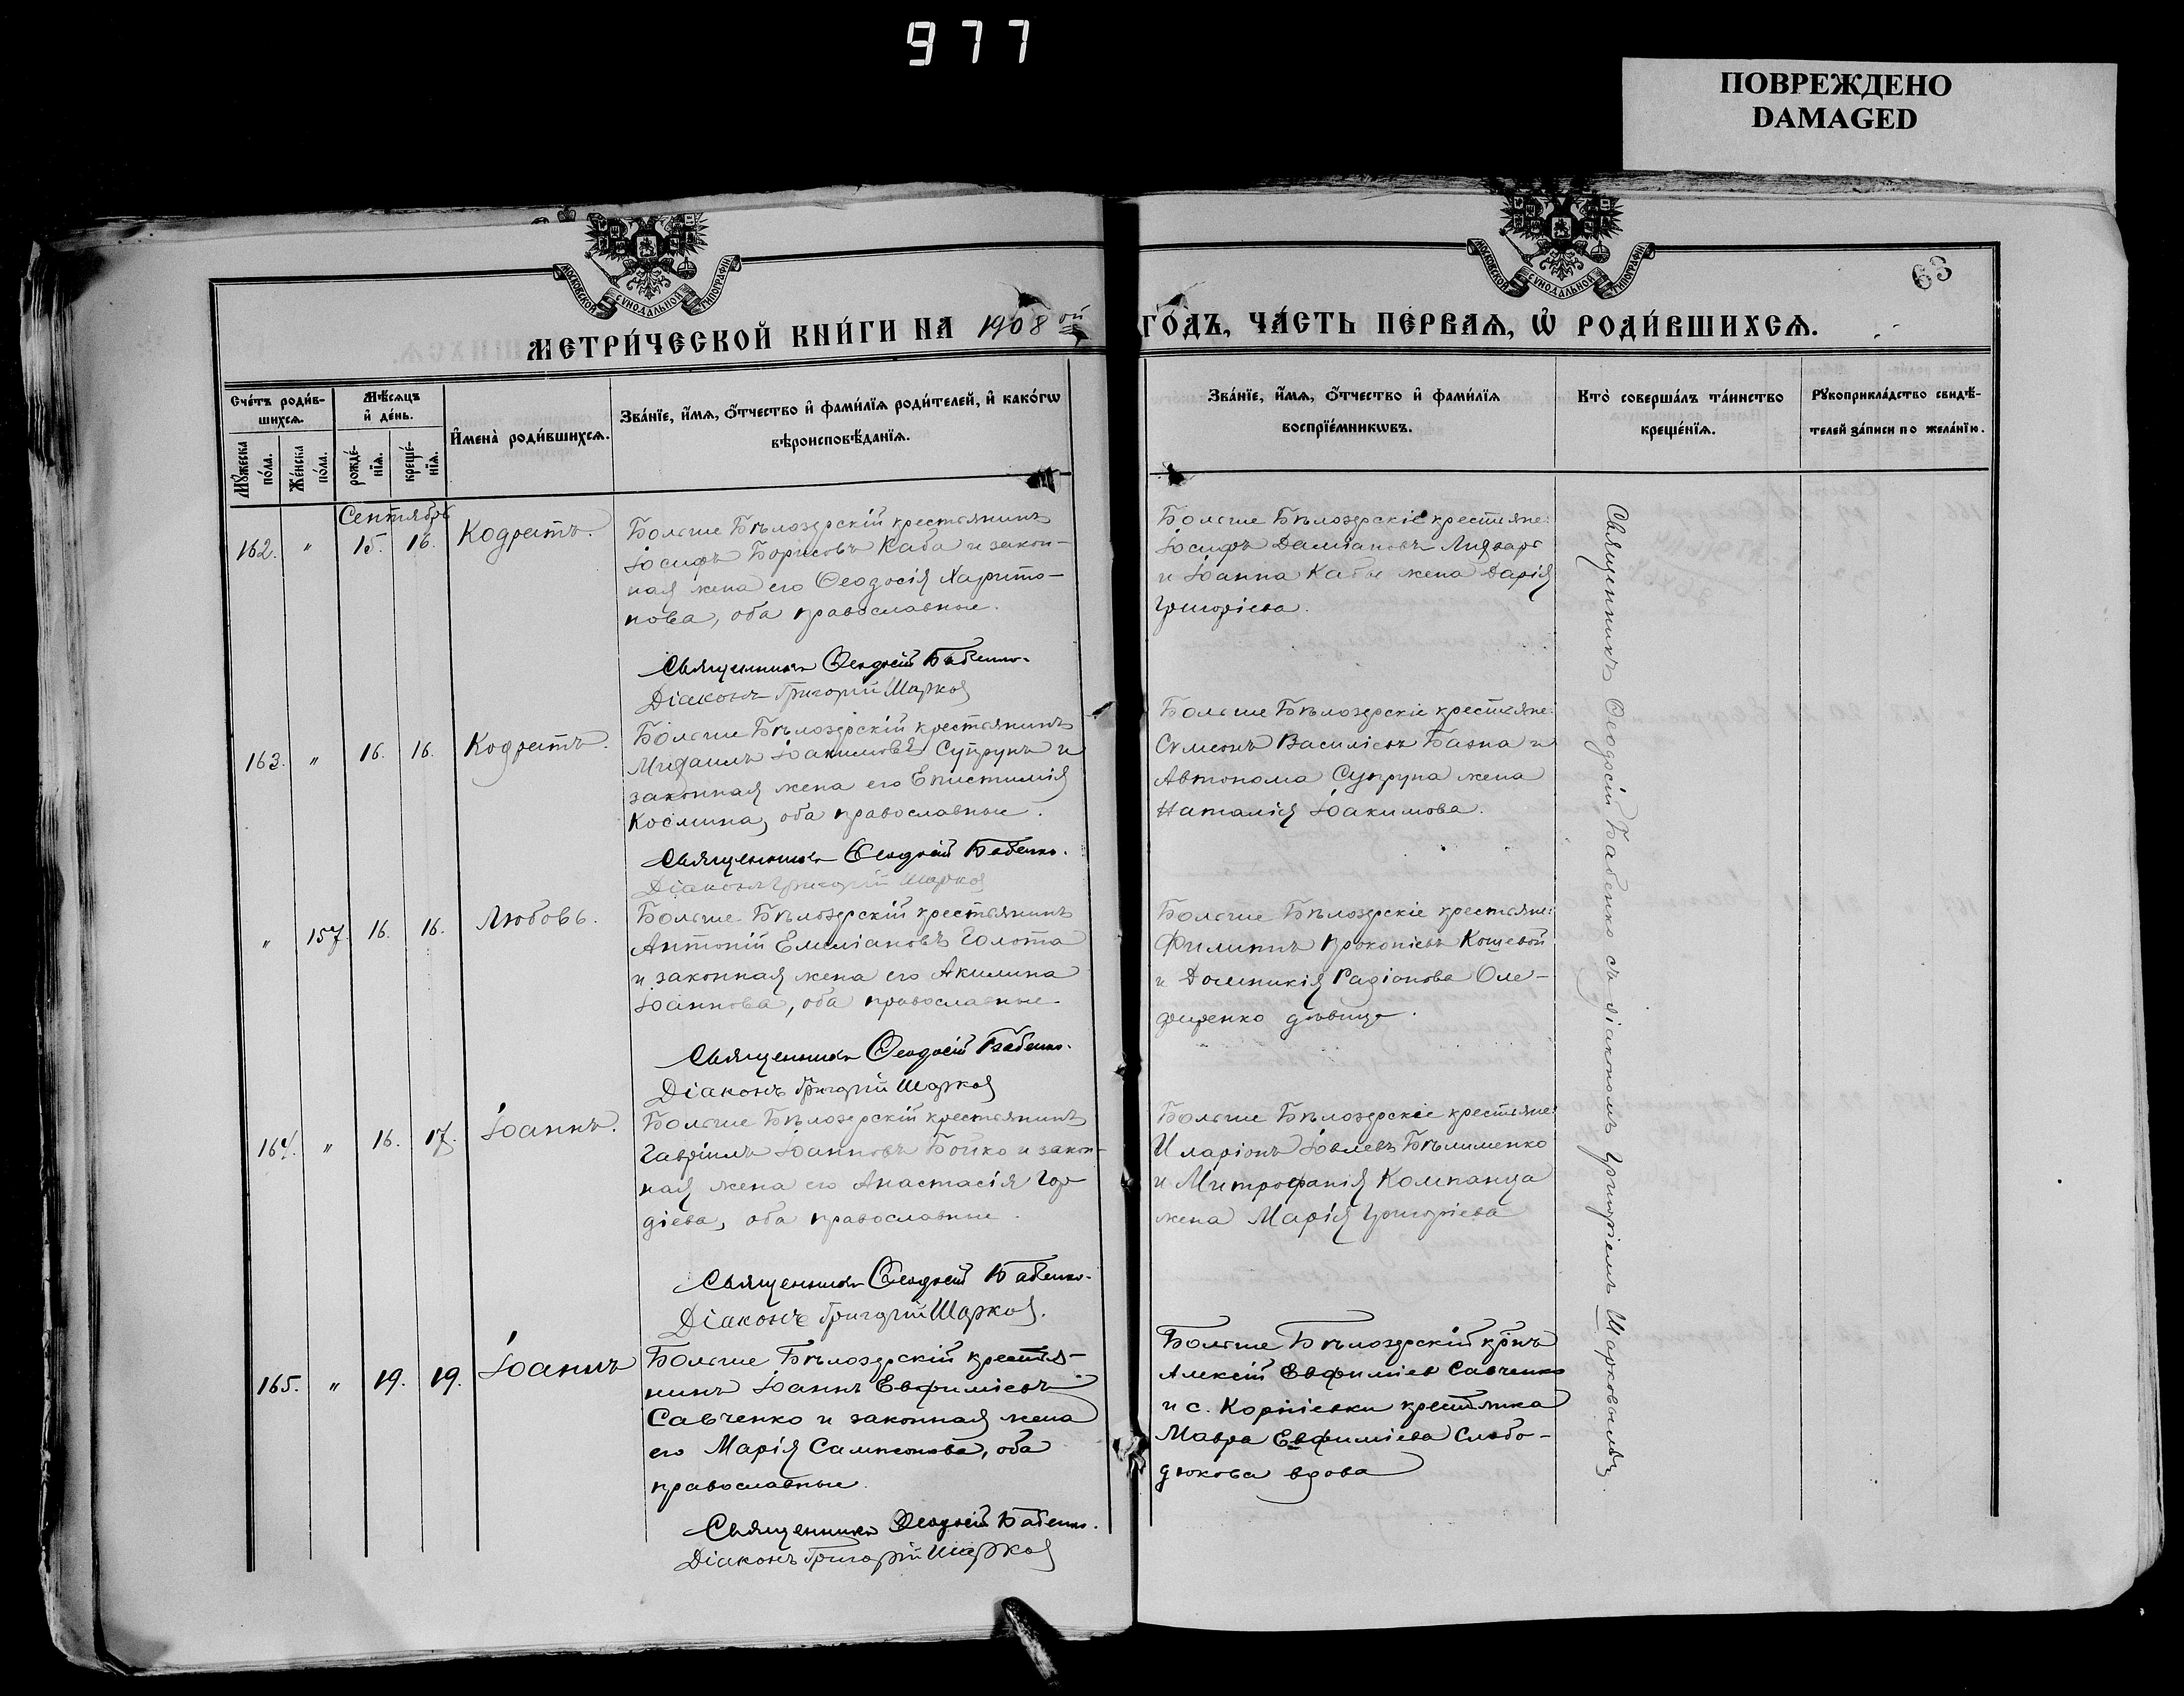 977
ПОВРЕЖДЕНО
DAMAGED
МОСКОВСКОЙ СѴНОДАЛЬНОЙ ТИПОГРАФІИ
МОСКОВСКОЙ СѴНОДАЛЬНОЙ ТИПОГРАФІИ
63
МЕТРИ́ЧЕСКОЙ КНИ́ГИ НА 1908 ой ГО́ДЪ, ЧА́СТЬ ПЕ́РВАѦ, Ѡ҆ РОДИ́ВШИХСѦ.
Сче́тъ роди́в-
шихсѧ.
Мꙋ́жеска по́ла.
Же́нска по́ла.
Мѣ́сѧцъ
и҆ де́нь.
рожде́-
нїѧ.
креще́-
нїѧ.
И҆мена̀ роди́вшихсѧ.
Зва́нїе, и҆́мѧ, ѻ҆́тчество и҆ фами́лїѧ роди́телей, и҆ како́гѡ
вѣроисповѣ́данїѧ.
Зва́нїе, и҆́мѧ, ѻ҆́тчество и҆ фами́лїѧ
воспрїе́мникѡвъ.
Кто̀ соверша́лъ та́инство
креще́нїѧ.
Рꙋкоприкла́дство свидѣ́-
телей за́писи по жела́нїю.
Сентябрь
162. " 15. 16. Кодратъ.
Больше Бѣлозерскій крестьянинъ
Іосифъ Борисовъ Каба и закон-
ная жена его Ѳеодосія Харито-
нова, оба православные.
Священникъ Ѳеодосій Бабенко.
Діаконъ Григорій Шарков
Больше Бѣлозерскіе крестьяне:
Іосифъ Даміановъ
и Іоанна Кабы жена Дарія
Григоріева.
163. " 16. 16. Кодратъ.
Больше Бѣлозерскій крестьянинъ
Михаилъ Іоакимовъ Супрунъ и
законная жена его Епистимія
Космина, оба православные.
Священникъ Ѳеодосій Бабенко.
Діаконъ Григорій Шарков
Больше Бѣлозерскіе крестьяне:
Сѵмеонъ Василіевъ Базна и
Автонома Супруна жена
Наталія Іоакимова.
" 157. 16. 16. Любовь.
Больше Бѣлозерскій крестьянинъ
Антоній Емиліановъ Голота
и законная жена его Акилина
Іоаннова, оба православные.
Священникъ Ѳеодосій Бабенко.
Діаконъ Григорій Шарков
Больше Бѣлозерскіе крестьяне:
Филиппъ Прокопіевъ Кошевой
и Домникія Радіонова Оле-
фиренко дѣвица.
164. " 16. 17. Іоаннъ.
Больше Бѣлозерскій крестьянинъ
Гавріилъ Іоанновъ Бойко и закон-
ная жена его Анастасія Гор
діева, оба православные.
Священникъ Ѳеодосій Бабенко.
Діаконъ Григорій Шарков.
Больше Бѣлозерскіе крестьяне:
Иларіонъ Іовлевъ Бѣлименко
и Митрофанія Компанца
жена Марія Григоріева
165. " 19. 19. Іоаннъ
Больше Бѣлозерскій крестья-
нинъ Іоаннъ Евфиміевъ
Савченко и законная жена
его Марія Сампсонова, оба
православные.
Священникъ Ѳеодосій Бабенко.
Діаконъ Григорій Шарков
Больше Бѣлозерскій кр̃нъ
Алексій Евфиміев Савченко
и с. Корніевки крестьянка
Мавра Евфиміева Слобо-
дюкова вдова
Священникъ Ѳеодосій Бабенко съ діакономъ Григоріемъ Шарковымъ.